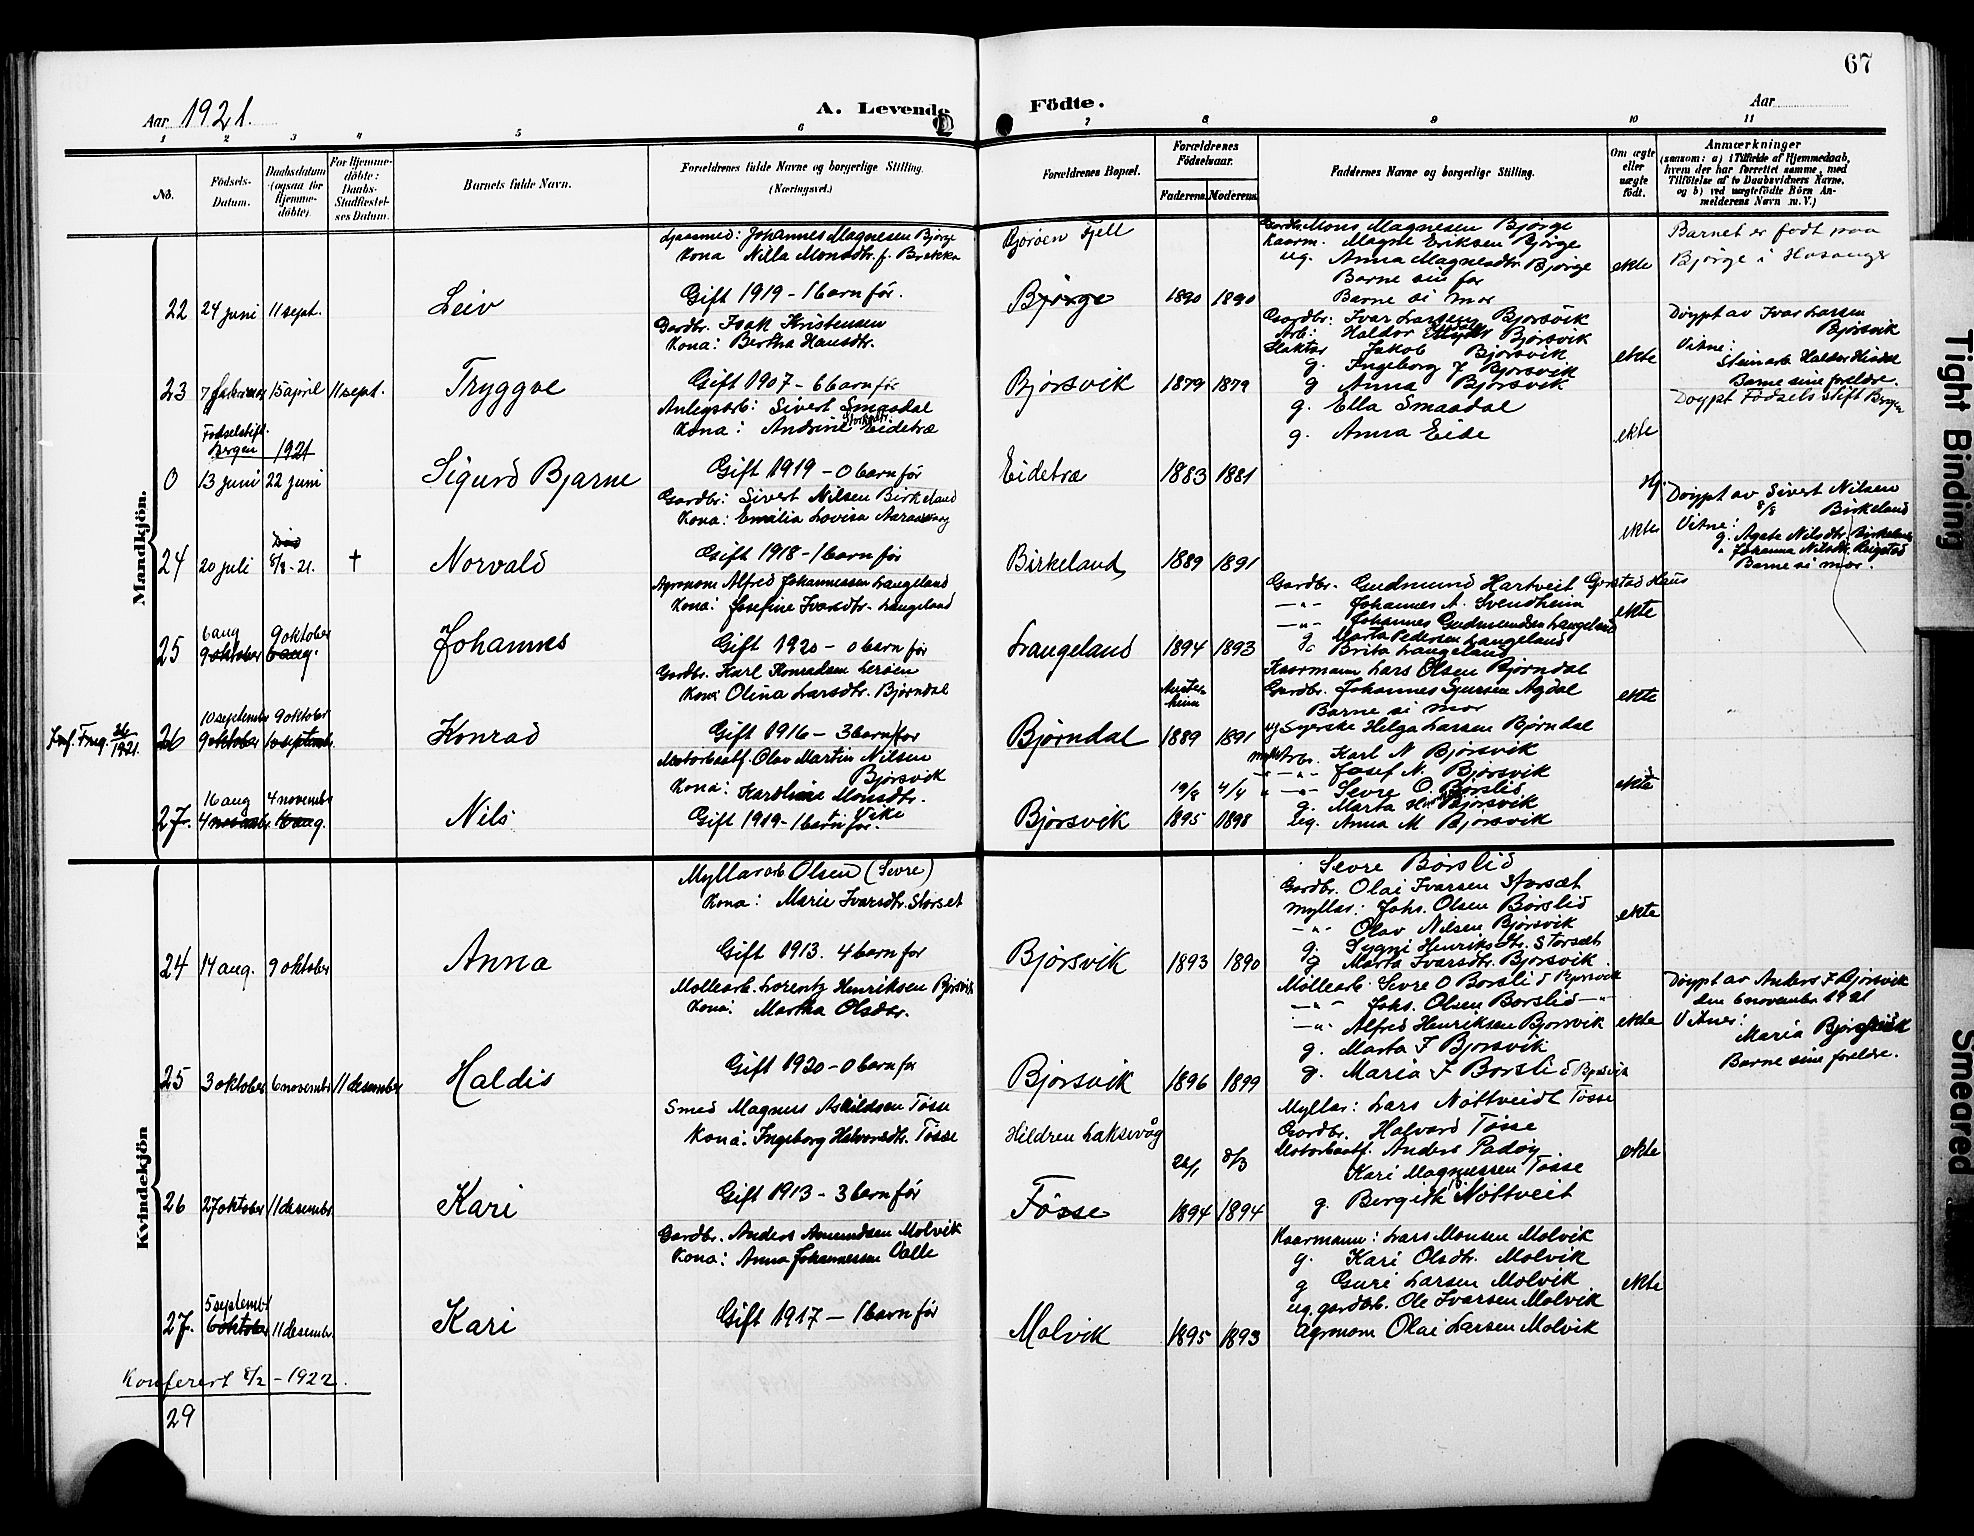 67
Aar 1921.
A. Levende Födte.
Aar
1 2 3 4 5 6 7 8 9 10 11
No.
Födsels-Datum.
Daabsdatum (ogsaa for Hjemme-döbte)
For Hjemme-döbte: Daabs-Stadfæstel-ses Datum.
Barnets fulde Navn.
Forældrenes fulde Navne og borgerlige Stilling. (Næringsvei.)
Forældrenes Bopæl.
Forældrenes Födselsaar.
Faderens Moderens
Faddernes Navne og borgerlige Stilling.
Om ægte eller uægte födt.
Anmærkninger (saasom: a) i Tilfælde af Hjemmedaab, hvem der har forrettet samme, med Tilföielse af to Daabsvidners Navne, og b) ved uægtefödte Börn An-melderens Navn m. V.)
Mandkjön.
Johannes Magnesen Bjørge
Kona Nilla Monsdtr. f. Brekke
Bjorøen Fjell
Mons Magnesen Bjørge
Kaarm. Magne Eriksen Bjørge
ug. Anna Magnesdtr Bjørge
Barne sin far
Barne si mor
ekte
Barnet er født paa
Bjørge i Hosanger
22 24 juni 11 sept. Leiv
Gift 1919 - 1 barn før.
Bjørge 1890 1890
Gardbr. Isak Kristensen
Kona: Bertha Hansdtr.
Gardbr: Ivar Larsen Bjørsvik
Arb: Haldor Bjørsvik
Slaktar Jakob Bjørsvik
g. Ingeborg J Bjørsvik
g Anna Bjørsvik
ekte
Døypt av Ivar Larsen
Bjørsvik
Vitne:
Barne sine foreldre.
23 7 februar 15 april 11 sept. Tryggve
Gift 1907 - 6 barn før
Bjørsvik 1879 1879
Anlegsarb: Sivert Smaadal
Kona: Andrine Eidetræ
g. Ella Smaadal
g. Anna Eide
ekte
Døypt Fødselsstift Bergen
Fødselstift.
Bergen 1921
0 13 juni 22 juni Sigurd Bjarne
Gift 1919 - 0 barn før
Eidetræ 1883 1881
Gardbr: Sivert Nilsen Birkeland
Kona: Emilia Lovisa
Hj.
ekte
Døypt av Sivert Nilsen
8/8 Birkeland
Vitne:
g. Agate Nilsdtr Birkeland
" Johanna Nilsdtr.
Barne si mor.
24 20 juli 8/8-21. † Norvald
Gift 1918 - 1 barn før
Birkeland 1889 1891
Agronom Alfred Johannessen Langeland
Kona: Josefine Ivarsdtr. Langeland
Gardbr. Gudmund Hartveit Haus
-"- Johannes A. Svendheim
-"- Johannes Gudmundsen Langeland
g Marta Pedersen Langeland
g Brita Langeland
ekte
6 aug 9 oktober
25 9 oktober 6 aug. Johannes
Gift 1920 - 0 barn før
Langeland 1894 1893
Gardbr. Karl Konradsen Lerøien
Kona: Olina Larsdtr. Bjørndal
Auster-
heim
Kaarmann Lars Olsen Bjørndal
Gardbr. Johannes Sjursen Agdal
Barne si mor
ekte
10 september 9 oktober
26 9 oktober 10 september Konrad
Gift 1916 - 3 barn før
Bjørndal 1889 1891
Helga Larsen Bjørndal
Motorbaatf. Olav Martin Nilsen
Bjørsvik
Kona: Karoline Monsdtr.
Vike
Arb. Karl N Bjørsvik
-"- Josef N. Bjørsvik
-"- Sevre O. Børslid
g. Marta Bjørsvik
ug. Anna M Bjørsvik
ekte
16 aug 4 november
27. Nils
Gift 1919 - 1 barn før.
Bjørsvik 1895 1898
Kvindekjön
Myllararb Olsen (Sevre)
Kona: Marie Ivarsdtr. Storset
Sevre Børslid
Gardbr. Olai Ivarsen Storsæt
Myllar: Johs. Olsen Børslid
-"- Olav Nilsen Bjørsvik
g. Sygni Henriksdtr. Storsæt
g Marta Ivarsdtr. Bjørsvik
ekte
24 14 aug. 9 oktober Anna
Gift 1913. 4 barn før
Bjørsvik 1893 1890
Møllearb. Lorentz Henriksen Bjørsvik
Kona: Martha Olsdtr.
Møllearb. Sevre O Børslid Bjørsvik
-"- Johs. Olsen Børslid -"-
-"- Alfred Henriksen Bjørsvik
g. Marta J Bjørsvik
g. Maria J Børslid Bjørsvik
ekte
Døypt av Anders J Bjørsvik
den 6 november 1921
Vitner:
Maria Bjørsvik
Barne sine foreldre.
25 3 oktober 6 november 11 desember Haldis
Gift 1920 - 0 barn før
Bjørsvik 1896 1899
Smed Magnus Askildsen Tøsse
Kona: Ingeborg Halvorsdtr. Tøsse
Hildren Laksevåg
8/3
Myllar: Lars Nøttveidt Tøsse
Gardbr. Halvard Tøsse
Motorbaatf. Anders Padøy
Kari Magnussen Tøsse
g. Bergith Nøttveit
ekte
26 27 oktober 11 desembr. Kari
Gift 1913 - 3 barn før
Tøsse 1894 1894
Gardbr. Anders Amundsen Molvik
Kona: Anna Johannessen Valle
Kaarmann: Lars Monsen Molvik
g. Kari Olsdtr. Molvik
g Guri Larsen Molvik
ug. gardbr. Ole Ivarsen Molvik
Agronom Olai Larsen Molvik
ekte
5 septembr
27. 6 oktober 11 desembr. Kari
Gift 1917 - 1 barn før
Molvik 1895 1893
Konferert 8/2 - 1922.
29
Tight Binding
Smeared